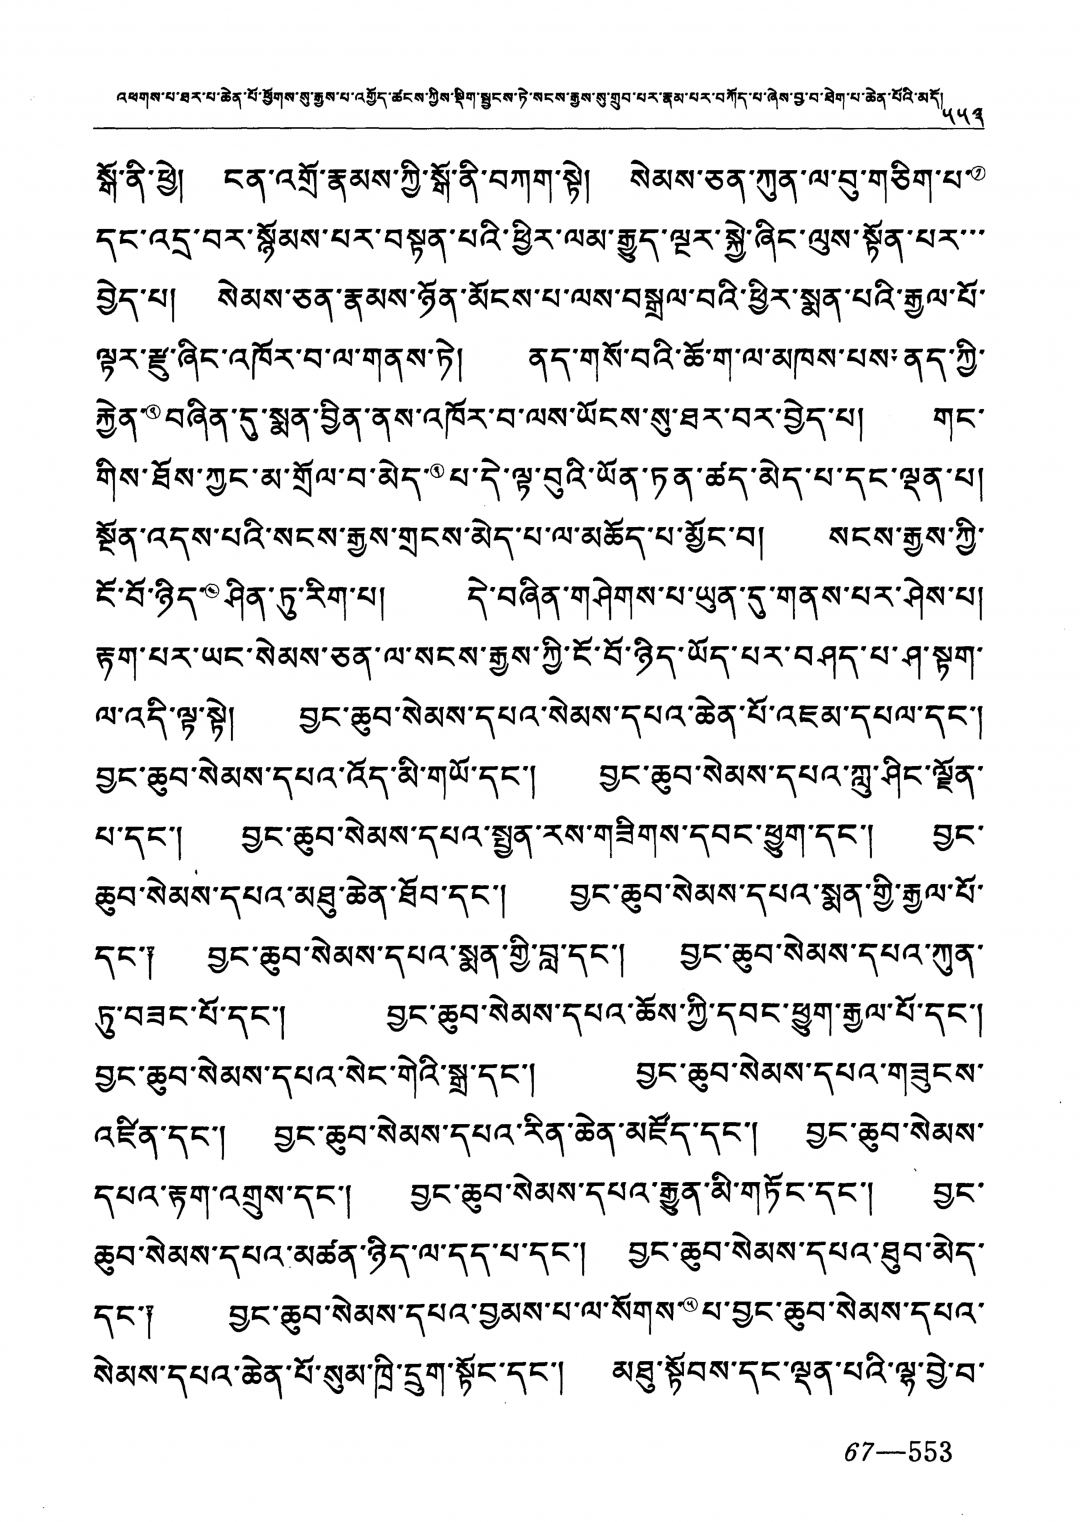 འཕགས་པ་ཐར་པ་ཆེན་པོ་ཕྱོགས་སུ་རྒྱས་པ་འགྱོད་ཚངས་ཀྱིས་སྡིག་སྦྱངས་ཏེ་སངས་རྒྱས་སུ་གྲུབ་པར་རྣམ་པར་བཀོད་པ་ཞེས་བྱ་བ་ཐེག་པ་ཆེན་པོའི་མདོ། ༥༥༣
སྒོ་ནི་ཕྱེ། ངན་འགྲོ་རྣམས་ཀྱི་སྒོ་ནི་བཀག་སྟེ། སེམས་ཅན་ཀུན་ལ་བུ་གཅིག་པ་
དང་འདྲ་བར་སྙོམས་པར་བསྟན་པའི་ཕྱིར་ལམ་རྒྱུད་ལྔར་སྐྱེ་ཞིང་ལུས་སྟོན་པར་་་
བྱེད་པ། སེམས་ཅན་རྣམས་ཉོན་མོངས་པ་ལས་བསྒྲལ་བའི་ཕྱིར་སྨན་པའི་རྒྱལ་པོ་
ལྟར་རྫུ་ཞིང་འཁོར་བ་ལ་གནས་ཏེ། ནད་གསོ་བའི་ཆོ་ག་ལ་མཁས་པས་ནད་ཀྱི་
རྐྱེན་བཞིན་དུ་སྨན་བྱིན་ནས་འཁོར་བ་ལས་ཡོངས་སུ་ཐར་བར་བྱེད་པ། གང་
གིས་ཐོས་ཀྱང་མ་གྲོལ་བ་མེད་པ་དེ་ལྟ་བུའི་ཡོན་ཏན་ཚད་མེད་པ་དང་ལྡན་པ།
སྔོན་འདས་པའི་སངས་རྒྱས་གྲངས་མེད་པ་ལ་མཆོད་པ་མྱོང་བ། སངས་རྒྱས་ཀྱི་
ངོ་བོ་ཉིད་ཤིན་ཏུ་རིག་པ། དེ་བཞིན་གཤེགས་པ་ཡུན་དུ་གནས་པར་ཤེས་པ།
རྟག་པར་ཡང་སེམས་ཅན་ལ་སངས་རྒྱས་ཀྱི་ངོ་བོ་ཉིད་ཡོད་པར་བཤད་པ་ཤ་སྟག་
ལ་འདི་ལྟ་སྟེ། བྱང་ཆུབ་སེམས་དཔའ་སེམས་དཔའ་ཆེན་པོ་འཇམ་དཔལ་དང་།
བྱང་ཆུབ་སེམས་དཔའ་འོད་མི་གཡོ་དང་། བྱང་ཆུབ་སེམས་དཔའ་ཀླུ་ཤིང་ལྗོན་
པ་དང་། བྱང་ཆུབ་སེམས་དཔའ་སྤྱན་རས་གཟིགས་དབང་ཕྱུག་དང་། བྱང་
ཆུབ་སེམས་དཔའ་མཐུ་ཆེན་ཐོབ་དང་། བྱང་ཆུབ་སེམས་དཔའ་སྨན་གྱི་རྒྱལ་པོ་
དང་༑ བྱང་ཆུབ་སེམས་དཔའ་སྨན་གྱི་བླ་དང་། བྱང་ཆུབ་སེམས་དཔའ་ཀུན་
ཏུ་བཟང་པོ་དང་། བྱང་ཆུབ་སེམས་དཔའ་ཆོས་ཀྱི་དབང་ཕྱུག་རྒྱལ་པོ་དང་།
བྱང་ཆུབ་སེམས་དཔའ་སེང་གེའི་སྒྲ་དང་། བྱང་ཆུབ་སེམས་དཔའ་གཟུངས་
འཛིན་དང་། བྱང་ཆུབ་སེམས་དཔའ་རིན་ཆེན་མཛོད་དང་། བྱང་ཆུབ་སེམས་
དཔའ་རྟག་འགྲུས་དང་། བྱང་ཆུབ་སེམས་དཔའ་རྒྱུན་མི་གཏོང་དང་། བྱང་
ཆུབ་སེམས་དཔའ་མཚན་ཉིད་ལ་དད་པ་དང་། བྱང་ཆུབ་སེམས་དཔའ་ཐུབ་མེད་
དང་༑ བྱང་ཆུབ་སེམས་དཔའ་བྱམས་པ་ལ་སོགས་པ་བྱང་ཆུབ་སེམས་དཔའ་
སེམས་དཔའ་ཆེན་པོ་སུམ་ཁྲི་དྲུག་སྟོང་དང་། མཐུ་སྟོབས་དང་ལྡན་པའི་ལྷ་བྱེ་བ་
67—553